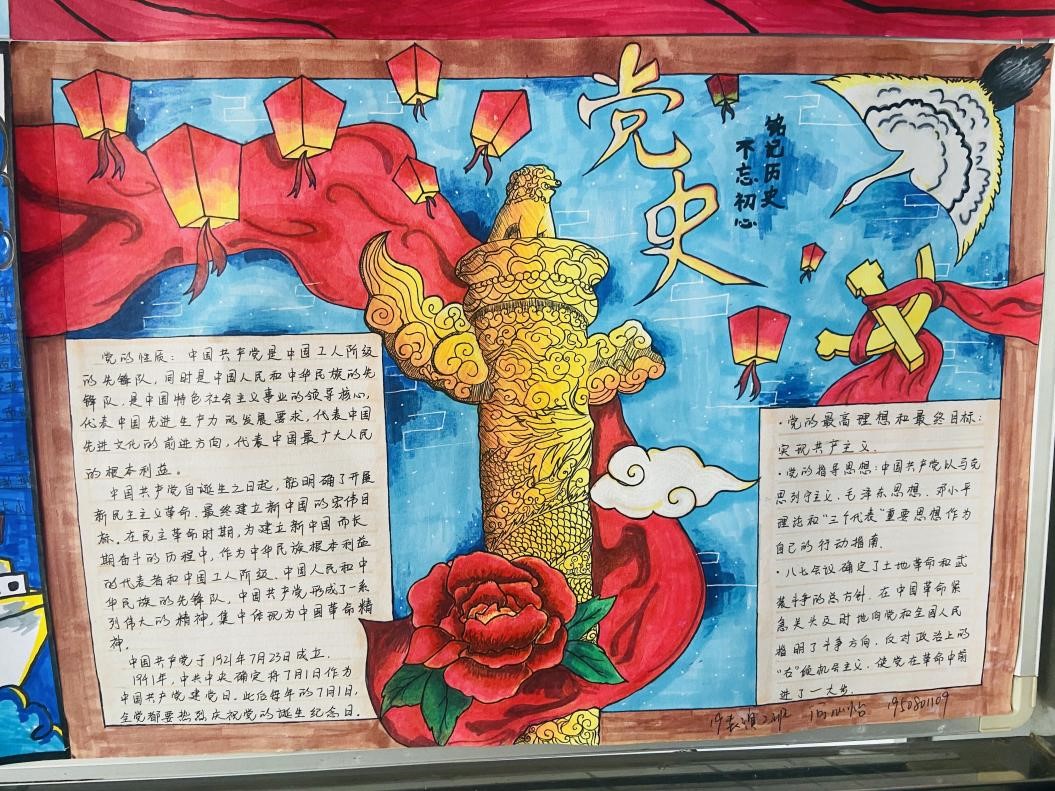 党史
铭记历史
不忘初心
党的性质：中国共产党是中国工人阶级
的先锋队，同时是中国人民和中华民族的先
锋队，是中国特色社会主义事业的领导核心，
代表中国先进生产力的发展要求，代表中国
先进文化的前进方向，代表中国最广大人民
的根本利益。
中国共产党自诞生之日起，就明确了开展
新民主主义革命、最终建立新中国的宏伟目
标。在民主革命时期，为建立新中国而长
期奋斗的历程中，作为中华民族根本利益
的代表者和中国工人阶级、中国人民和中
华民族的先锋队，中国共产党形成了一系
列伟大的精神，集中体现为中国革命精
神。
中国共产党于1921年7月23日成立.
1941年，中共中央确定将7月1日作为
中国共产党建党日，此后每年的7月1日，
全党都要热烈庆祝党的诞生纪念日.
·党的最高理想和最终目标：
实现共产主义.
·党的指导思想：中国共产党以马克
思列宁主义、毛泽东思想、邓小平
理论和“三个代表”重要思想作为
自己的行动指南.
·八七会议确定了土地革命和武
装斗争的总方针.在中国革命紧
急关头及时地向党和全国人民
指明了斗争方向，反对政治上的
“右”倾机会主义，使党在革命中前
进了一大步.
1950801109